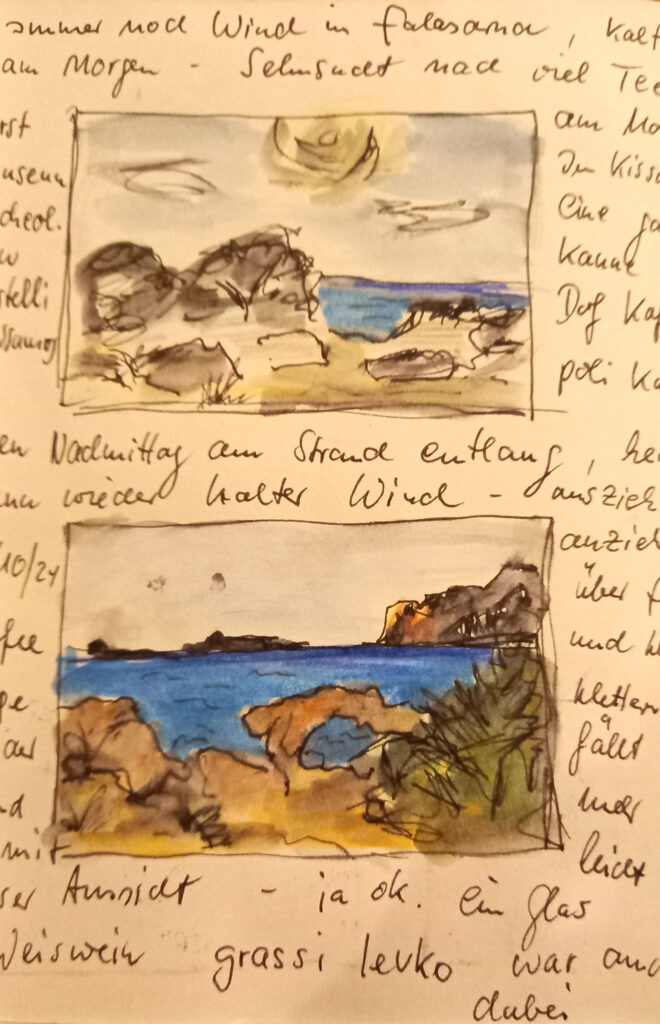 immer noch Wind in Falasarna, kalt
am Morgen - Sehnsucht nach viel Tee
rst
useum
cheol.
stelli
ssamos
am Mo
In Kissa
Eine ga
Kanne
Dof Kap
poli Ka
en Nachmittag am Strand entlang, he
nn wieder kalter Wind - auszieh
/10/24
fee
ge
er
d
mit
anzieh
über f
und
klettern
fällt
mar
leicht
ser Aussicht - ja ok. ein Glas
Weiswein grassi levko war auch
dabei